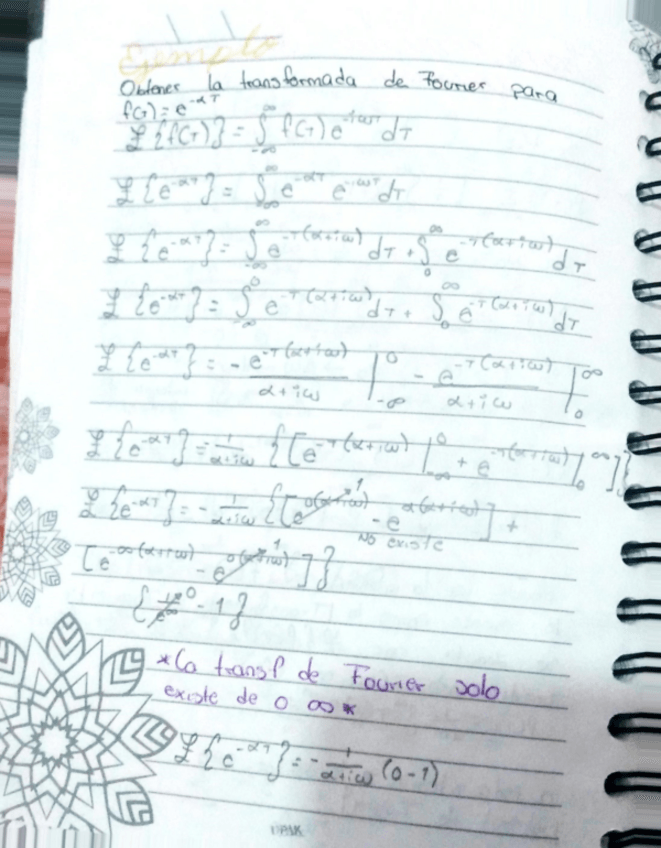 Ejemplo
Obtener la transformada de Fourier para
f(T) = e^-αT
ℱ{f(T)} = ∫_-∞^∞ f(T) e^-iωT dT
ℱ{e^-αT} = ∫_-∞^∞ e^-αT e^-iωT dT
ℱ{e^-αT} = ∫_-∞^∞ e^-T(α+iω) dT + ∫_0^∞ e^-T(α+iω) dT
ℱ{e^-αT} = ∫_-∞^0 e^-T(α+iω) dT + ∫_0^∞ e^-T(α+iω) dT
ℱ{e^-αT} = - e^-T(α+iω) / α+iω |_-∞^0 - e^-T(α+iω) / α+iω |_0^∞
ℱ{e^-αT} = 1/α+iω {[e^-T(α+iω) |_-∞^0 + e^-T(α+iω) |_0^∞]}
ℱ{e^-αT} = - 1/α+iω {[e^0(α+iω) 1 - e^α(α+iω)] +
No existe
[e^-∞(α+iω) - e^0(α+iω) 1]}
{1/e^∞ 0 - 1}
*La transf de Fourier solo
existe de 0 ∞*
ℱ{e^-αT} = - 1/α+iω (0-1)